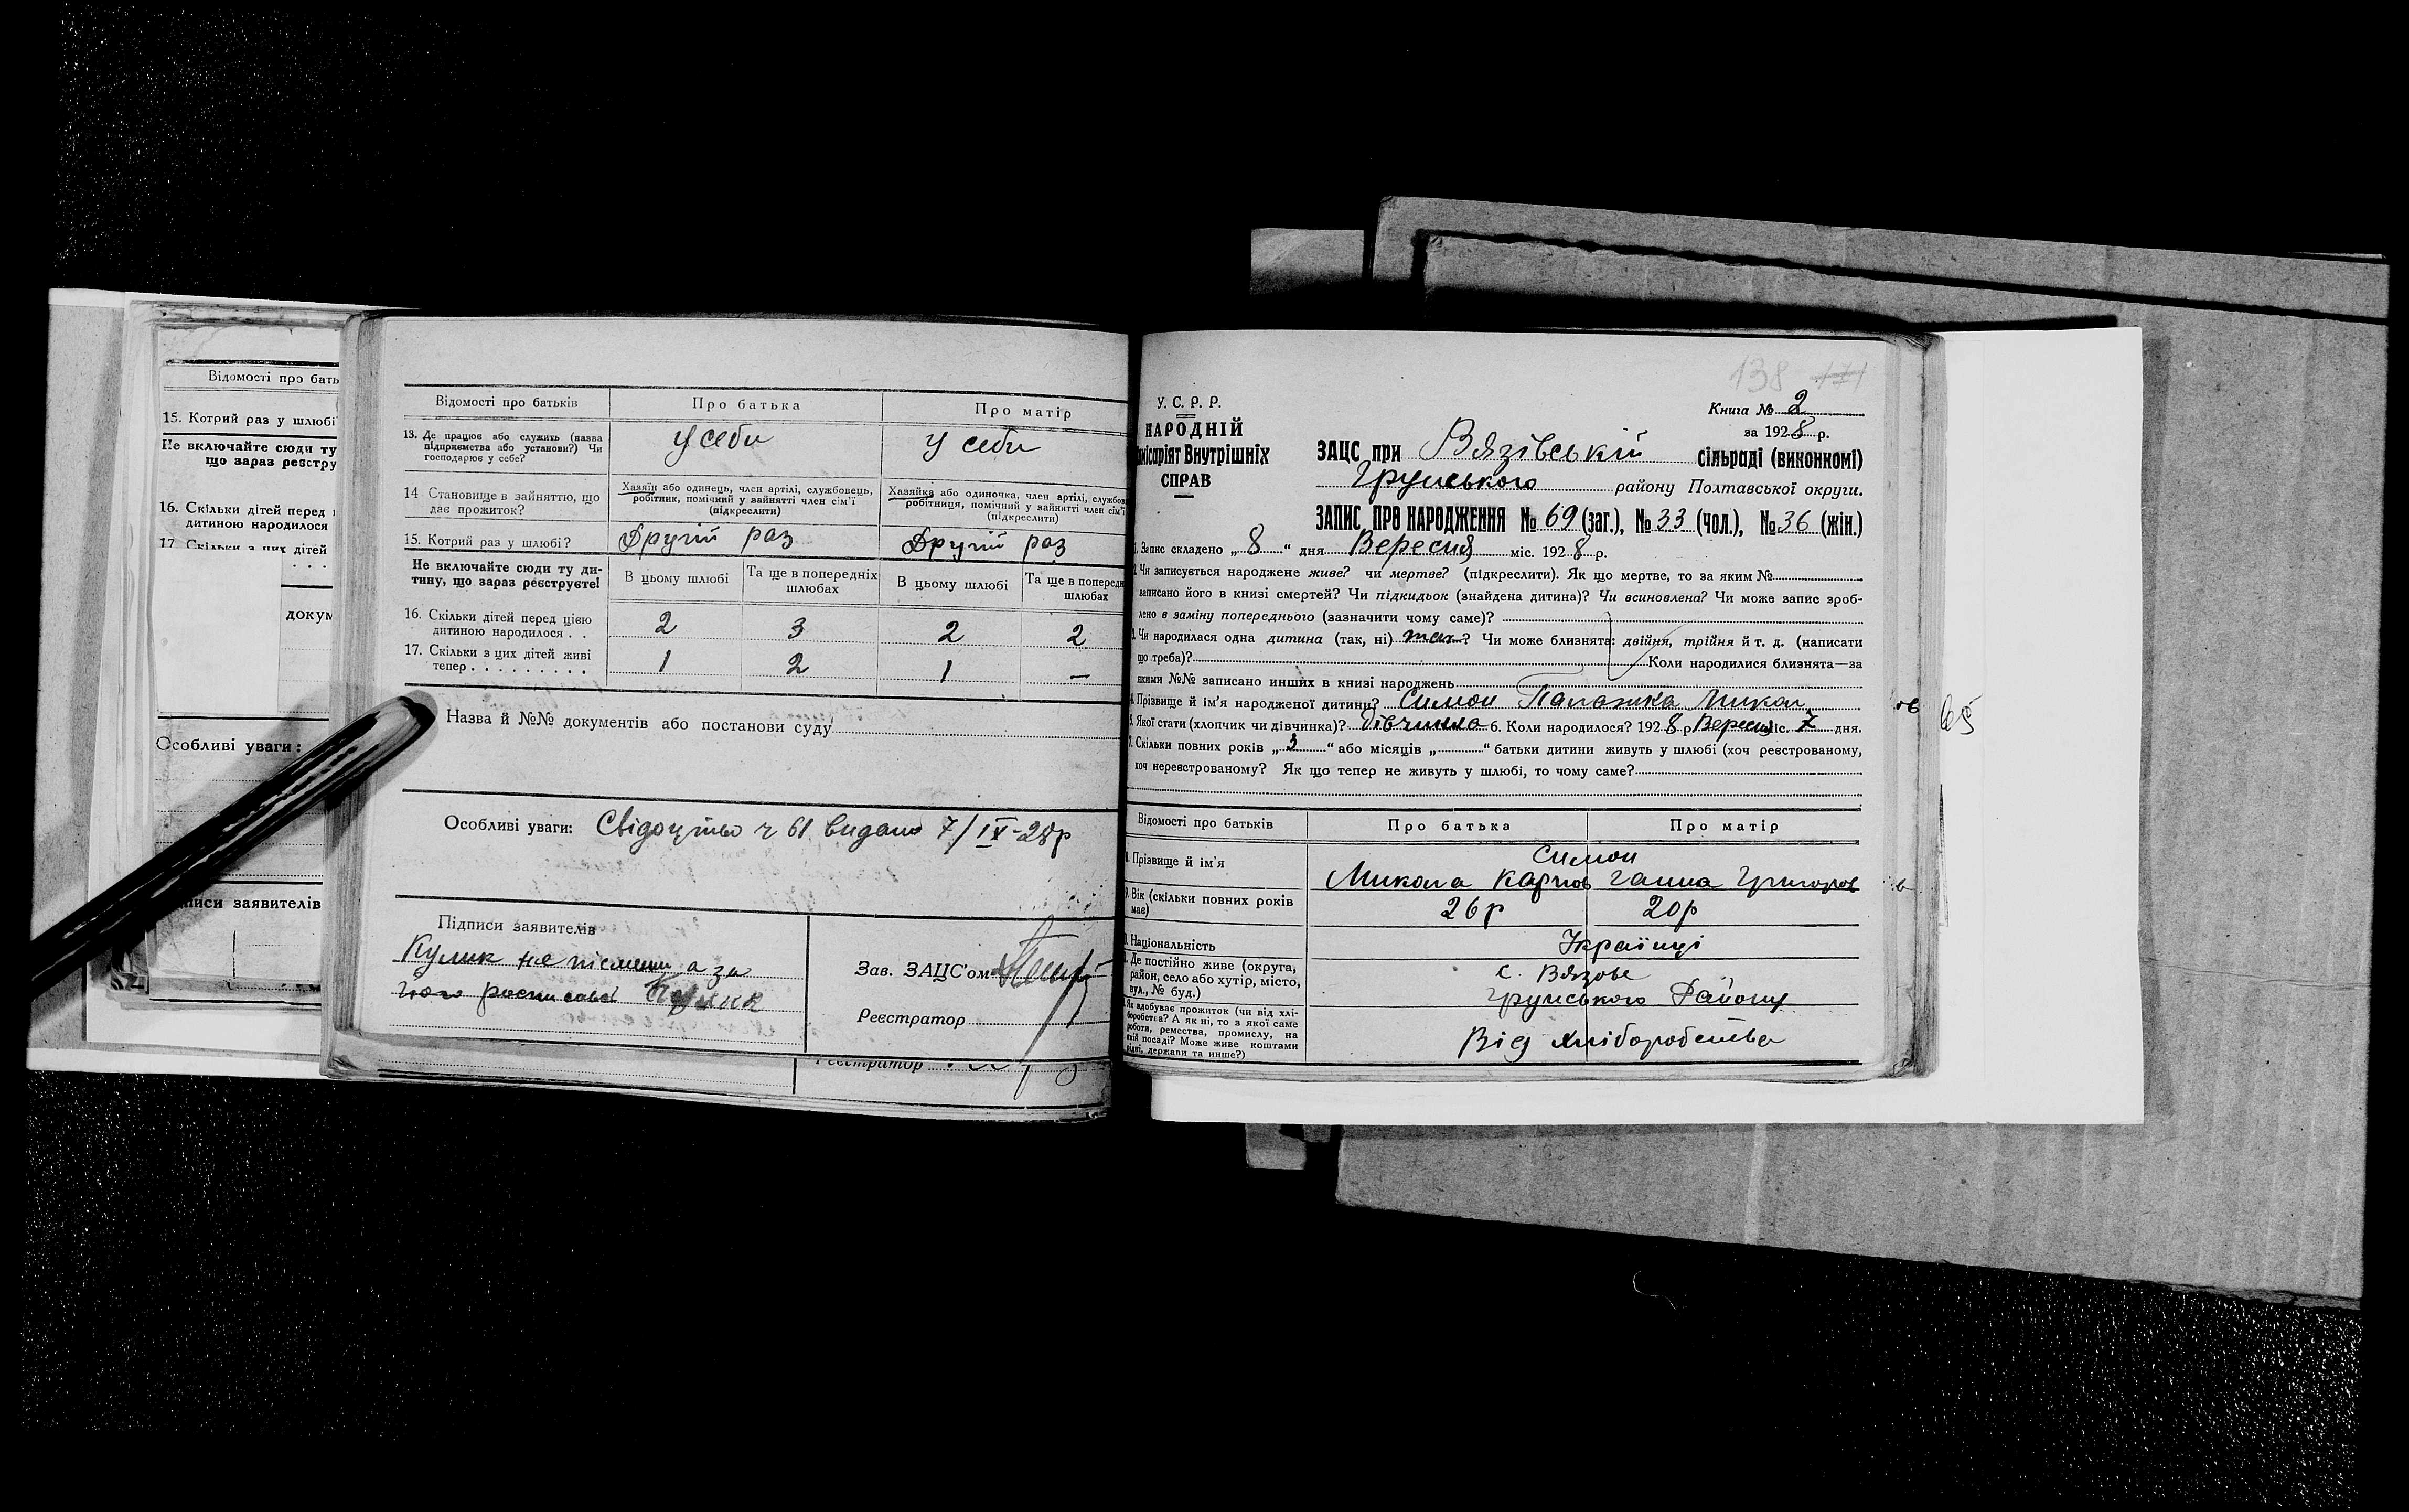 Відомості про бать
15. Котрий раз у шлюбі
Не включайте сюди ту
що зараз реєстру
16. Скільки дітей перед
дитиною народилося
17 Скільки з цих дітей
докум
Особливі уваги:
писи заявителів
Відомості про батьків Про батька Про матір
13. Де працює або служить (назва підприємства або установи?) Чи господарює у себе?
У себи У себи
14 Становище в зайняттю, що дає прожиток?
Хазяїн або одинець, член артілі, службовець, робітник, помічний у зайнятті член сім'ї (підкреслити)
Хазяйка або одиночка, член артілі, службов робітниця, помічний у зайнятті член сім'ї (підкреслити)
15. Котрий раз у шлюбі? Другій раз Другій раз
Не включайте сюди ту дитину, що зараз реєструєте!
В цьому шлюбі Та ще в попередніх шлюбах В цьому шлюбі Та ще в поперед шлюбах
16. Скільки дітей перед цією
дитиною народилося . . 2 3 2 2
17. Скільки з цих дітей живі
тепер . . . . . . . . . 1 2 1 —
Назва й №№ документів або постанови суду
Особливі уваги: Свідоцтво ч 61 видано 7/IX-28р
Підписи заявителів
Кулик не письмени а за
його росписавсь Кулик
Зав. ЗАЦС'ом
Реєстратор
Реєстратор
138 171
У. С. Р. Р.
НАРОДНІЙ
місаріят Внутрішніх
СПРАВ
Книга № 2
за 1928 р.
ЗАЦС при Вязівській сільраді (виконкомі)
Грунського району Полтавської округи.
ЗАПИС ПРО НАРОДЖЕННЯ № 69 (заг.), № 33 (чол.), № 36 (жін.)
1. Запис складено „ 8 “ дня Вересня міс. 1928 р.
2. Чи записується народжене живе? чи мертве? (підкреслити). Як що мертве, то за яким №
записано його в книзі смертей? Чи підкидьок (знайдена дитина)? Чи всиновлена? Чи може запис зроб-
лено в заміну попереднього (зазначити чому саме)?
3. Чи народилася одна дитина (так, ні) так? Чи може близнята: двійня, трійня й т. д. (написати
що треба)? Коли народилися близнята—за
якими №№ записано инших в книзі народжень
4. Прізвище й ім'я народженої дитини? Симон Палажка Микол
ов
5. Якої статі (хлопчик чи дівчинка)? дівчинка 6. Коли народилося? 1928 р. Вересня міс. 7 дня.
7. Скільки повних років „ 3 “ або місяців „ “ батьки дитини живуть у шлюбі (хоч реєстрованому,
хоч нереєстрованому? Як що тепер не живуть у шлюбі, то чому саме?
65
Відомості про батьків Про батька Про матір
8. Прізвище й ім'я
Симон
Микола Карпов Ганна Григоров
9. Вік (скільки повних років має) 26р 20р
10. Національність Українці
11. Де постійно живе (округа, район, село або хутір, місто, вул., № буд.)
с. Вязове
Грунського Району
12. Як здобуває прожиток (чи від хліборобства? А як ні, то з якої саме роботи, ремества, промислу, на якій посаді? Може живе коштами рідні, держави та инше?)
Від хліборобства